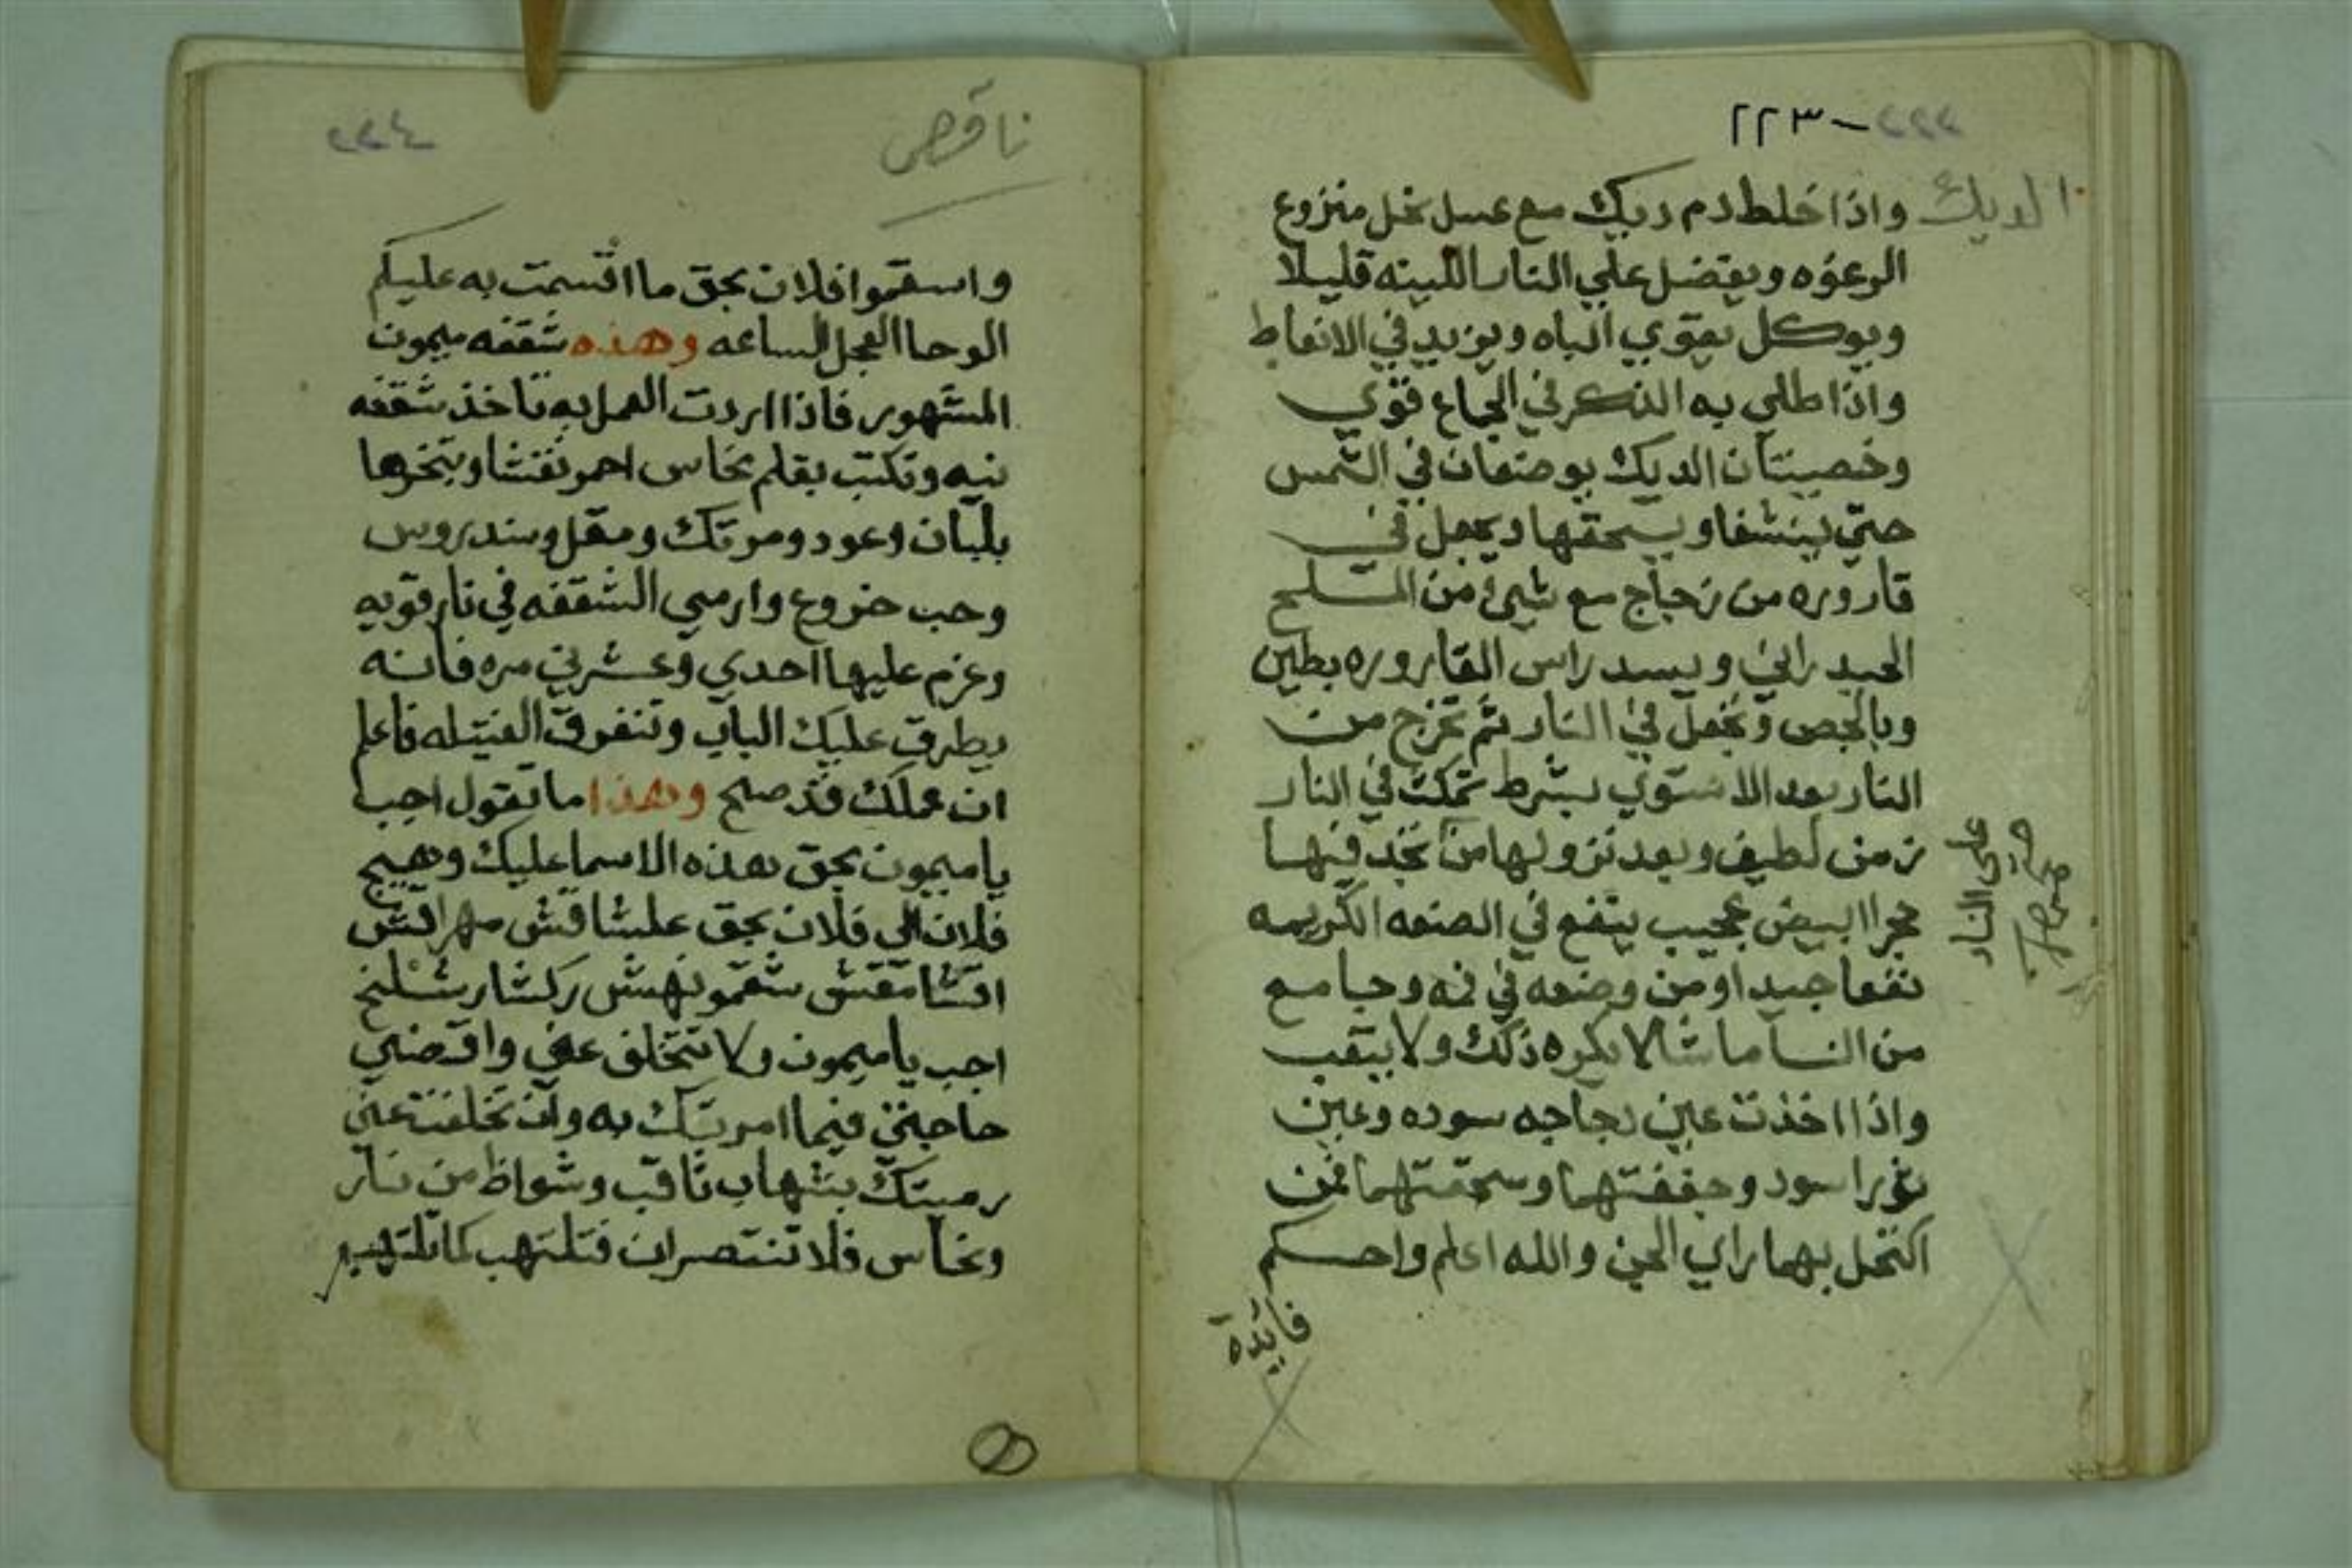 ٢٢٣
الديك
واذا خلط دم ديك مع عسل نحل منزوع
الرعوه ويعضل علي النار اللينه قليلا
ويوكل يقوي الباه ويزيد في الانعاط
واذا طلي به الذكر في الجماع قوي
وخصيتان الديك يوضعان في الشمس
حتي ينشفا ويسحقها ويجعل في
قاروره من زجاج مع شيئ من الملح
الحيدراني ويسد راس القاروره بطين
وبالجص وتجعل في النار ثم تخرج من
النار بعد الاستوي بشرط تمكث في النار
زمن لطيف وبعد نزولها من تجد فيها
حجرا ابيض عجيب ينفع في الصنعه الكريمه
نفعا جيدا ومن وضعه في فمه وجامع
من النسا ماشا لا يكره ذلك ولا يتعب
واذا اخذت عين دجاجه سوده وعين
اسود وجففتهما وسحقتهما فمن
اكتحل بهما راي الجن والله اعلم واحكم
فايدة
على النار
ناقص
٢٢٤
واسقموا فلان بحق ما اقسمت به عليكم
الوحا العجل الساعه وهذه شقفه ميمون
المشهور فاذا اردت العمل به تاخذ شقفه
نيه وتكتب بقلم نحاس احمر نقشا وتبخرها
بلبان وعود ومرتك ومقل وسندروس
وحب خروع وارمي الشقفه في نار قويه
وعزم عليها احدي وعشرين مره فانه
يطرق عليك الباب وتنفرق الفتيله فاعلم
ان عملك قد صلح وهذا ما تقول اجب
يا ميمون بحق هذه الاسما عليك وهيج
فلان الي فلان بحق علشاقش مهراقش
اقشامقش شقمونهش ركشا رشلخ
اجب يا ميمون ولا تتخلف عني واقضي
حاجتي فيما امرتك به وان تخلفت عني
رميتك بشهاب ثاقب وشواظ من نار
ونحاس فلا تنتصران فتلتهب كما تلتهب